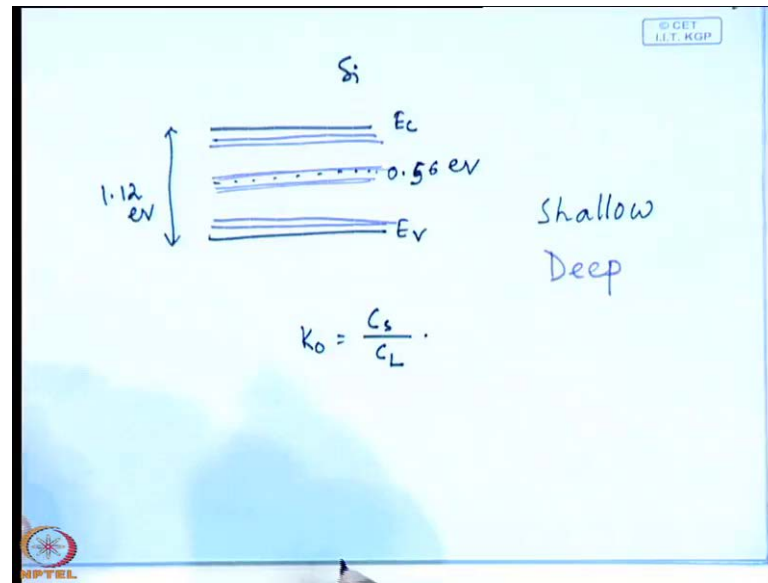 © CET
I.I.T. KGP
Si
Ec
0.56 ev
1.12
ev
Ev
Shallow
Deep
K₀ = Cs / CL .
NPTEL